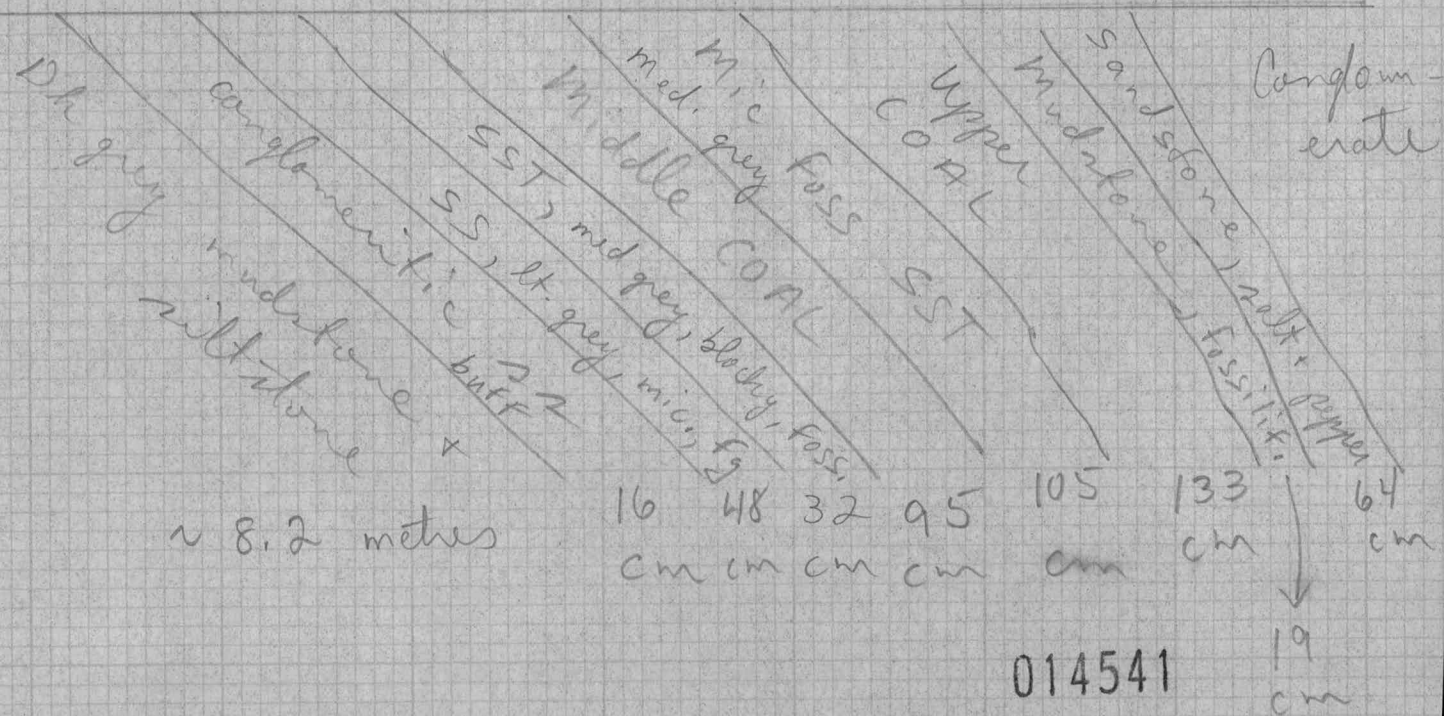 Dk grey
mudstone +
siltstone
conglomeritic SS
buff
SS, lt. grey, mic, fg
SST, med grey, blocky, foss.
Middle COAL
Mic foss SST
med. grey
Upper
COAL
Mudstone, fossilif.
Sandstone, salt + pepper
Conglom-
erate
~ 8.2 metres
16 cm
48 cm
32 cm
95 cm
105 cm
133 cm
19 cm
64 cm
014541